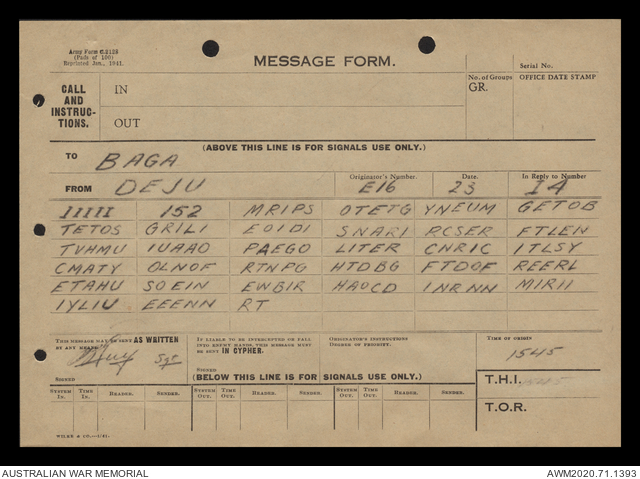 Army Form C.2128
(Pads of 100)
Reprinted Jan., 1941.
MESSAGE FORM.
Serial No.
CALL AND INSTRUC- TIONS.
IN
No. of Groups GR.
OFFICE DATE STAMP
OUT
(ABOVE THIS LINE IS FOR SIGNALS USE ONLY.)
TO BAGA
FROM DEJU
Originator's Number. E16
Date. 23
In Reply to Number I4
IIIII 152 MRIPS OTETG YNEUM GETOB
TETOS GRILI EOIDI SNARI PCSER FTLEN
TVHMU IUAAO PAEGO LITER CNRIC ITLSY
CMATY OLNOF RTNPG HTDBG FTDOF REERL
ETAHU SOEIN EWBIR HAOCD INRNN MIRII
IYLIU EEENN RT
THIS MESSAGE MAY BE SENT AS WRITTEN BY ANY MEANS.
Sgt
SIGNED
IF LIABLE TO BE INTERCEPTED OR FALL INTO ENEMY HANDS, THIS MESSAGE MUST BE SENT IN CYPHER.
SIGNED
ORIGINATOR'S INSTRUCTIONS DEGREE OF PRIORITY.
TIME OF ORIGIN
1545
(BELOW THIS LINE IS FOR SIGNALS USE ONLY.)
T.H.I. 1545
SYSTEM IN. TIME IN. READER. SENDER. SYSTEM OUT. TIME OUT. READER. SENDER. SYSTEM OUT. TIME OUT. READER. SENDER.
T.O.R.
AUSTRALIAN WAR MEMORIAL
AWM2020.71.1393